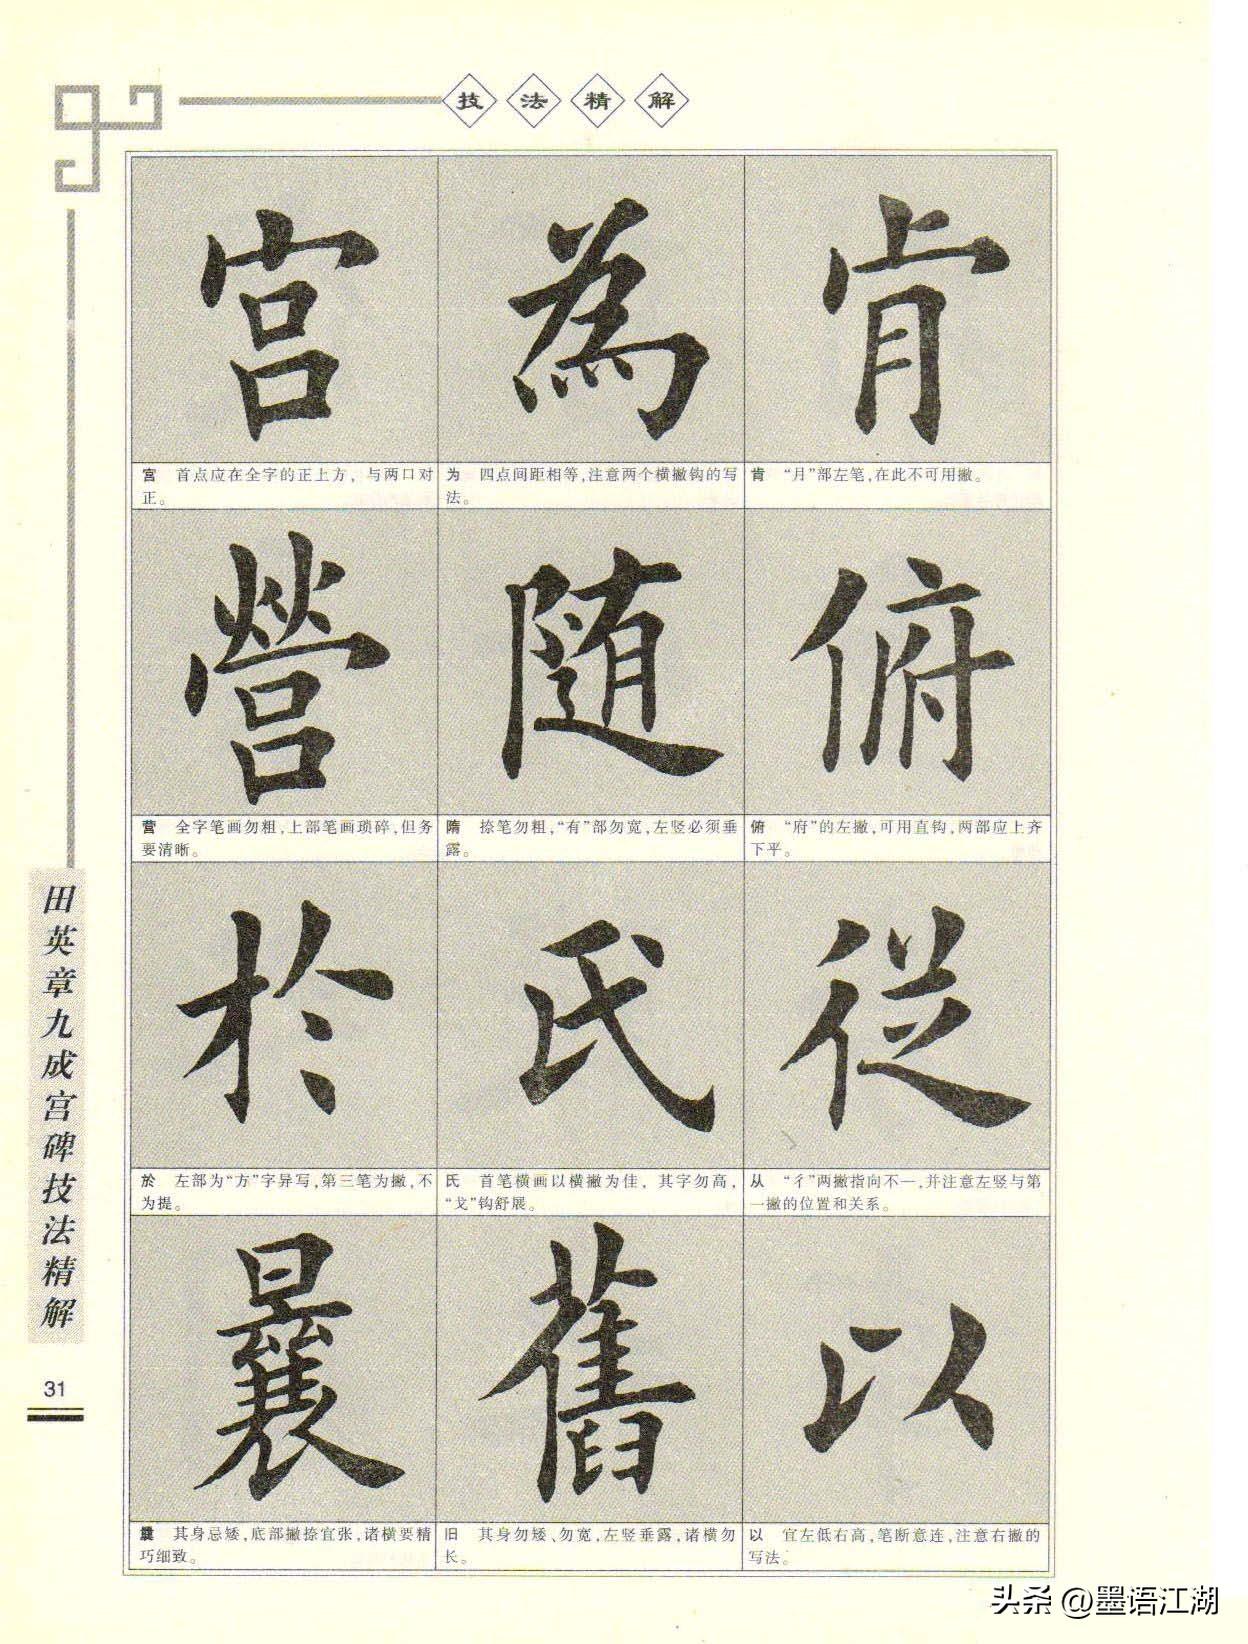 技法精解
宫 為 肯
宫 首点应在全字的正上方，与两口对
正。
为 四点间距相等，注意两个横撇钩的写
法。
肯 “月”部左笔，在此不可用撇。
營 随 俯
营 全字笔画勿粗，上部笔画琐碎，但务
要清晰。
隋 捺笔勿粗，“有”部勿宽，左竖必须垂
露。
俯 “府”的左撇，可用直钩，两部应上齐
下平。
於 氏 従
於 左部为“方”字异写，第三笔为撇，不
为提。
氏 首笔横画以横撇为佳，其字勿高，
“戈”钩舒展。
从 “彳”两撇指向不一，并注意左竖与第
一撇的位置和关系。
曩 舊 以
曩 其身忌矮，底部撇捺宜张，诸横要精
巧细致。
旧 其身勿矮、勿宽，左竖垂露，诸横勿
长。
以 宜左低右高，笔断意连，注意右撇的
写法。
田英章九成宫碑技法精解
31
头条 @墨语江湖